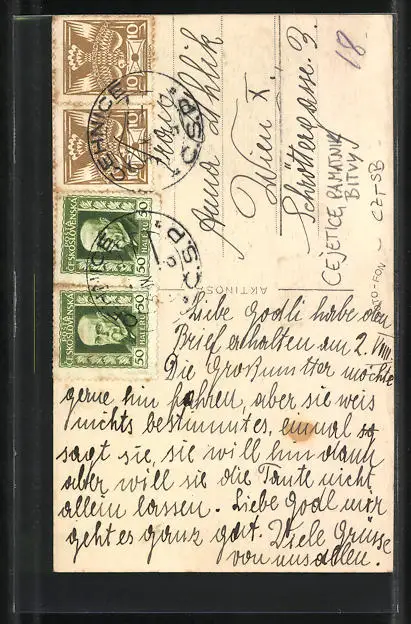 Frau
Anna Uhlik
Wien X.
Schröttergasse 3.
18
ČEJETICE, PAMÁTNÍK
BITVY
CZTSB
AKTINOS
Liebe Godli habe den
Brief erhalten am 2. VIII
Die Großmutter möchte
gerne hin fahren, aber sie weis
nichts bestimmtes, einmal so
sagt sie, sie will hin dann
aber will sie die Tante nicht
allein lassen. Liebe Godl mir
geht es ganz gut. Viele Grüsse
von uns allen.
10 10
10 10
POŠTA
ČESKOSLOVENSKÁ
50 50
HALÉŘŮ
POŠTA
ČESKOSLOVENSKÁ
50 50
HALÉŘŮ
ČEHNICE
Č.S.P.
Č.S.P.